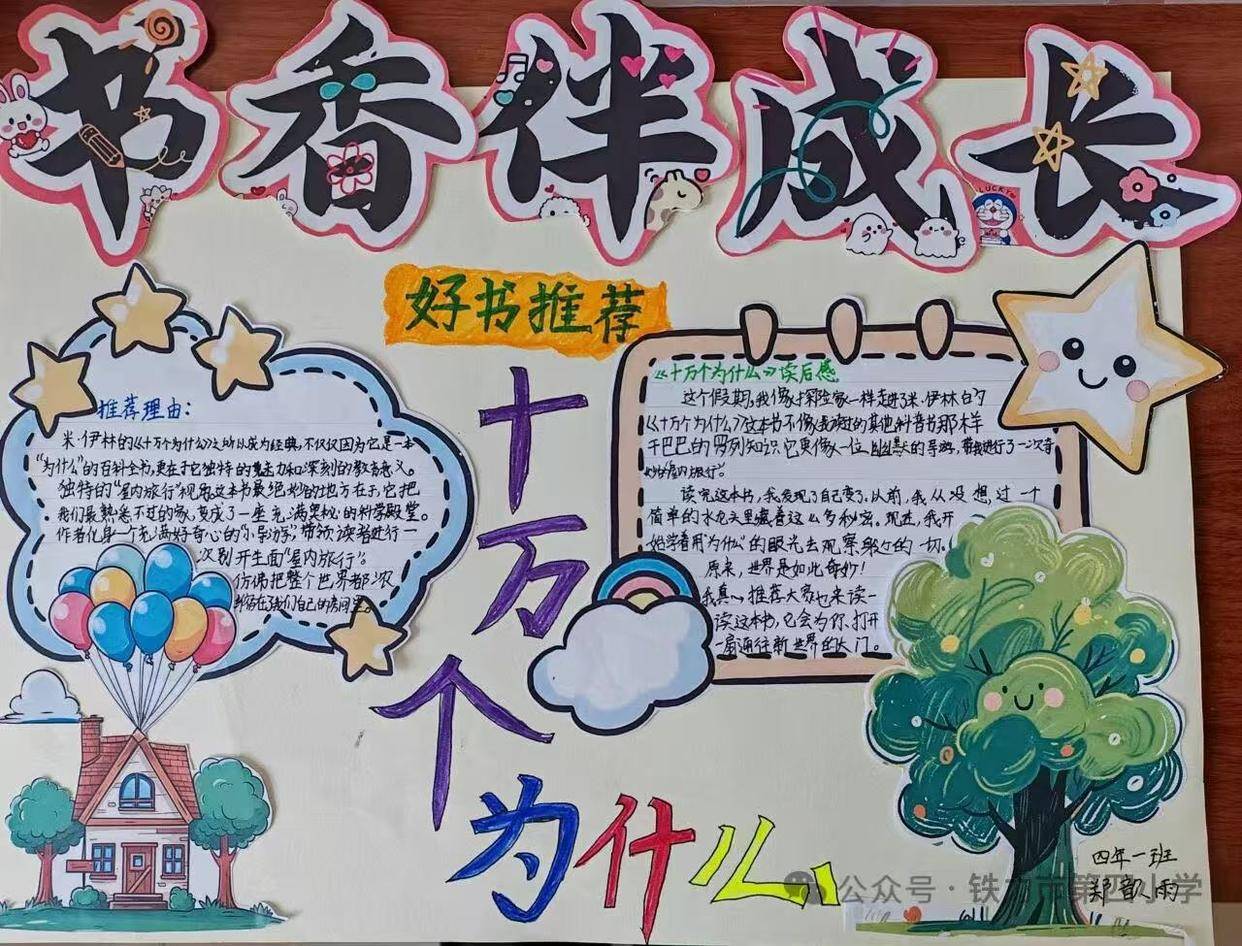 书香伴成长
LUCKY
好书推荐
十万个为什么
推荐理由:
米·伊林的《十万个为什么》之所以成为经典,不仅仅因为它是一本
“为什么”的百科全书,更在于它独特的魅力和深刻的教育意义。
独特的“屋内旅行”视角这本书最绝妙的地方在于,它把
我们最熟悉不过的家,变成了一座充满奥秘的科学殿堂。
作者化身一个充满好奇心的“小导游”,带领读者进行一
次别开生面“屋内旅行”。
仿佛把整个世界都浓
缩在了我们自己的房间里。
《十万个为什么》读后感
这个假期,我像探险家一样走进了米·伊林的
《十万个为什么》这本书不像我读过的其他科普书那样
干巴巴的罗列知识,它更像一位幽默的导游,带我进行了一次奇
妙“屋内旅行”。
读完这本书,我发现了自己变了。从前,我从没想过一个
简单的水龙头里藏着这么多秘密。现在,我开
始学着用“为什么”的眼光去观察身边的一切。
原来,世界是如此奇妙!
我真心推荐大家也来读一
读这本书,它会为你打开
一扇通往新世界的大门。
四年一班
郑歆雨
公众号·铁力市第四小学